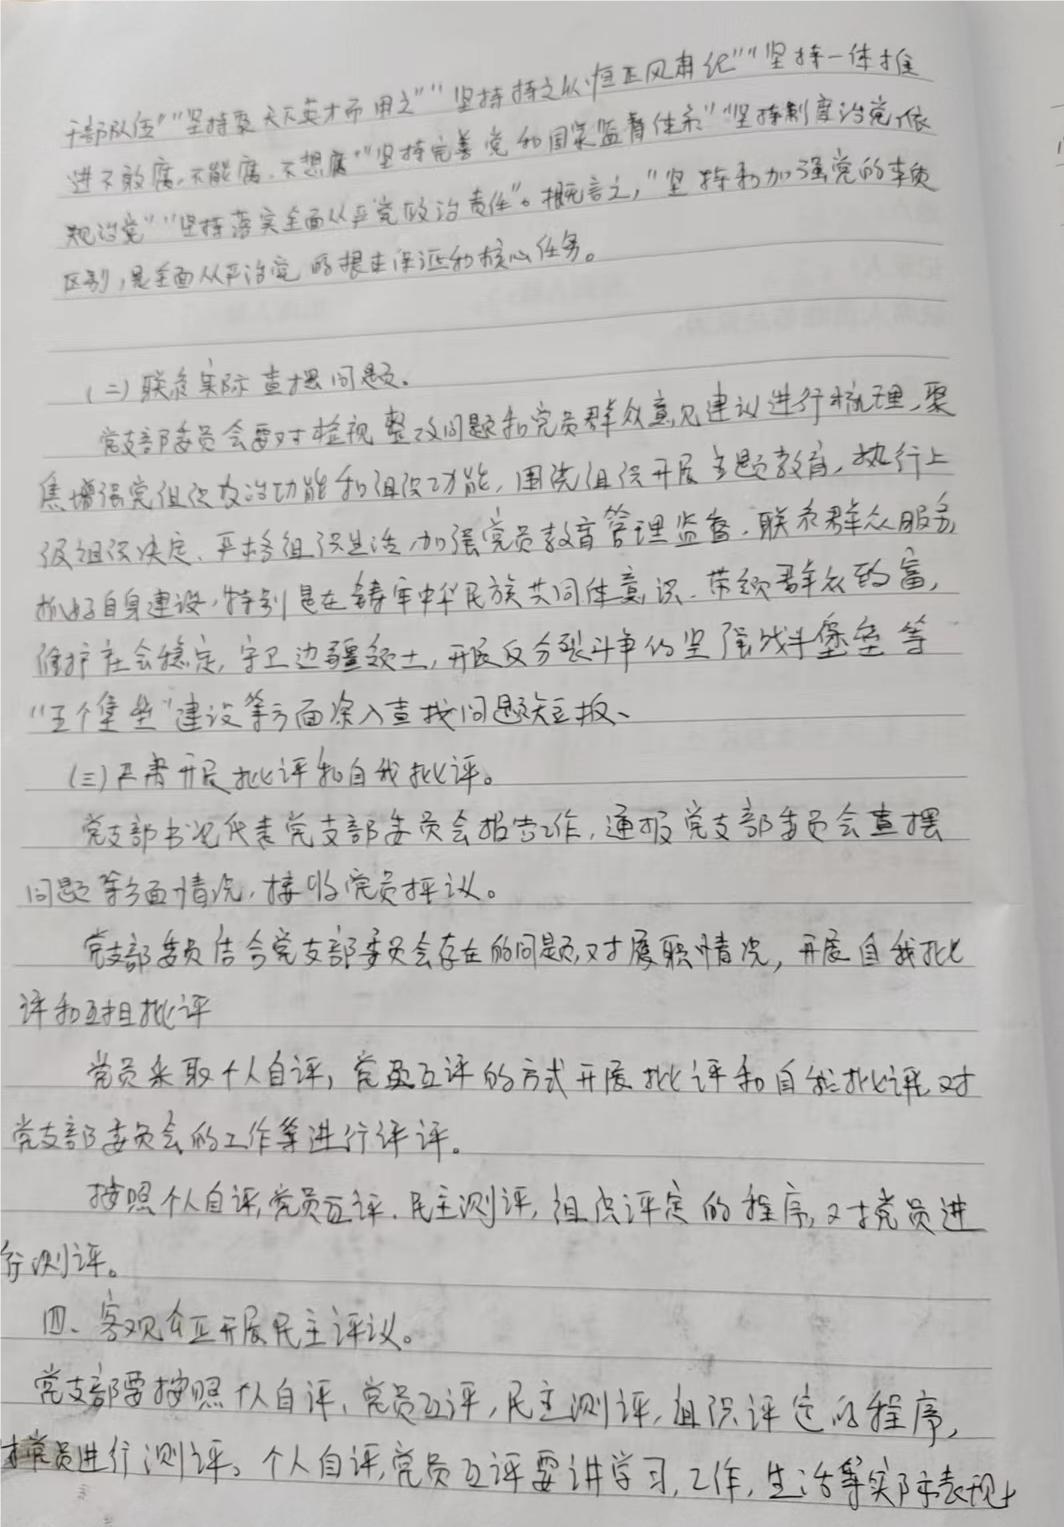 干部队伍”“坚持聚天下英才而用之”“坚持持之以恒正风肃纪”“坚持一体推
进不敢腐、不能腐、不想腐”“坚持完善党和国家监督体系”“坚持制度治党、依
规治党”“坚持落实全面从严治党政治责任”。概言之，“坚持和加强党的
区别，是全面从严治党的根本保证和核心任务。
（二）联系实际查摆问题。
党支部委员会要对检视整改问题和党员群众意见建议进行梳理，聚
焦增强党组织政治功能和组织功能，围绕组织开展主题教育，执行上
级组织决定、严格组织生活，加强党员教育管理监督、联系群众服务
抓好自身建设，特别是在铸牢中华民族共同体意识、带领群众致富，
维护社会稳定，守卫边疆领土，开展反分裂斗争的坚强战斗堡垒等
“五个堡垒”建设等方面深入查找问题短板、
（三）严肃开展批评和自我批评。
党支部书记代表党支部委员会报告工作，通报党支部委员会查摆
问题等方面情况，接收党员评议。
党支部委员结合党支部委员会存在的问题，对履职情况，开展自我批
评和互相批评
党员采取个人自评，党员互评的方式开展批评和自我批评，对
党支部委员会的工作等进行评评。
按照个人自评，党员互评、民主测评，组织评定的程序，对党员进
行测评。
四、客观公正开展民主评议。
党支部要按照个人自评、党员互评，民主测评，组织评定的程序，
对党员进行测评。个人自评，党员互评要讲学习，工作，生活等实际表现